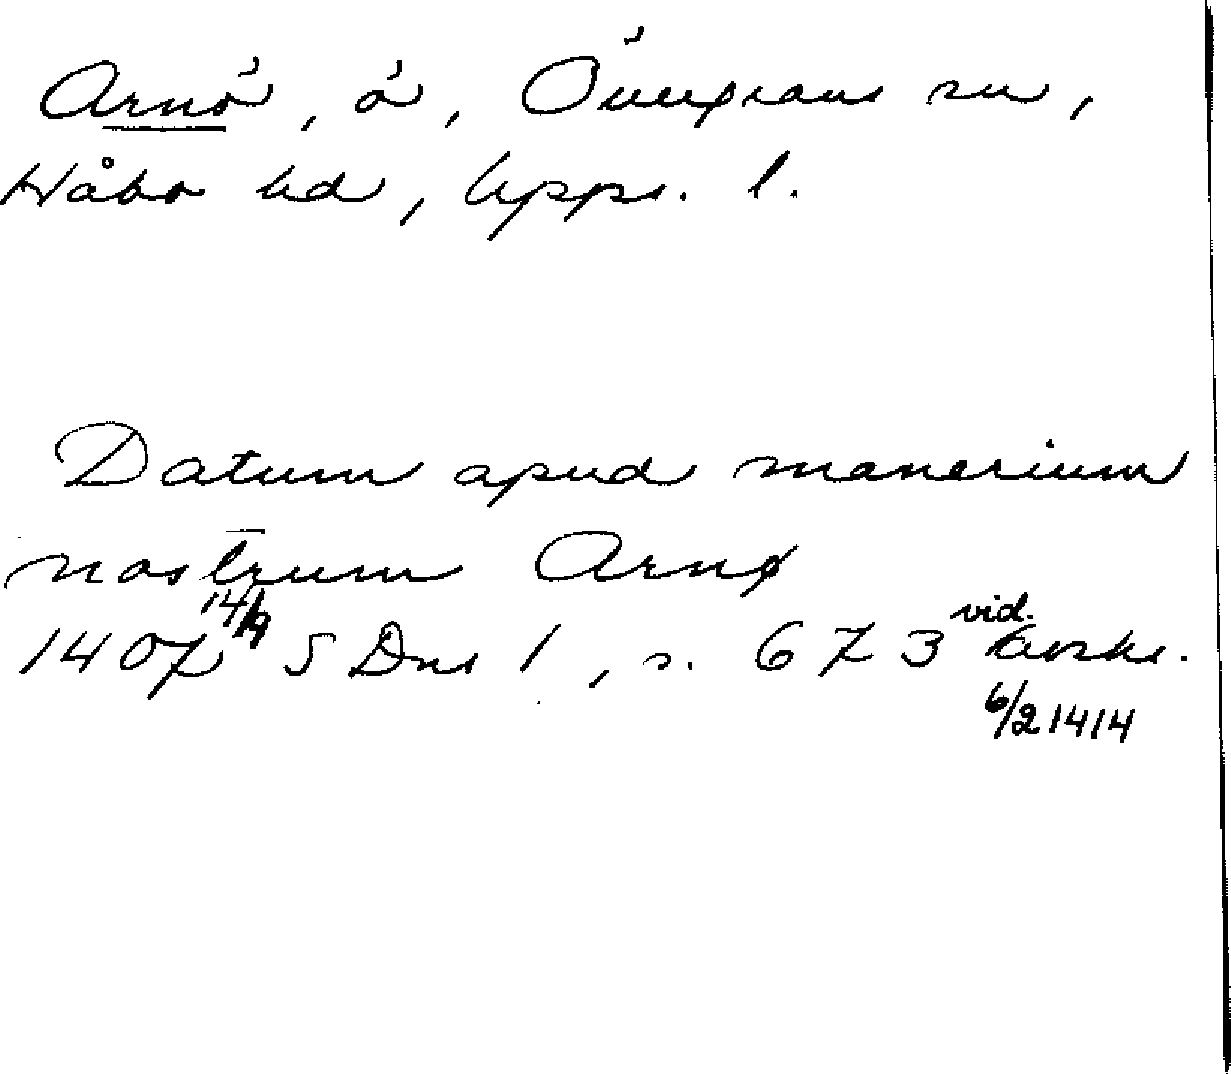 Arnö, ö, Övergrans sn,
Håbo hd, Upps. l.
Datum apud manerium
nostrum Arnø
1407 14/9 SDns 1, s. 673 vid. avskr.
6/2 1414